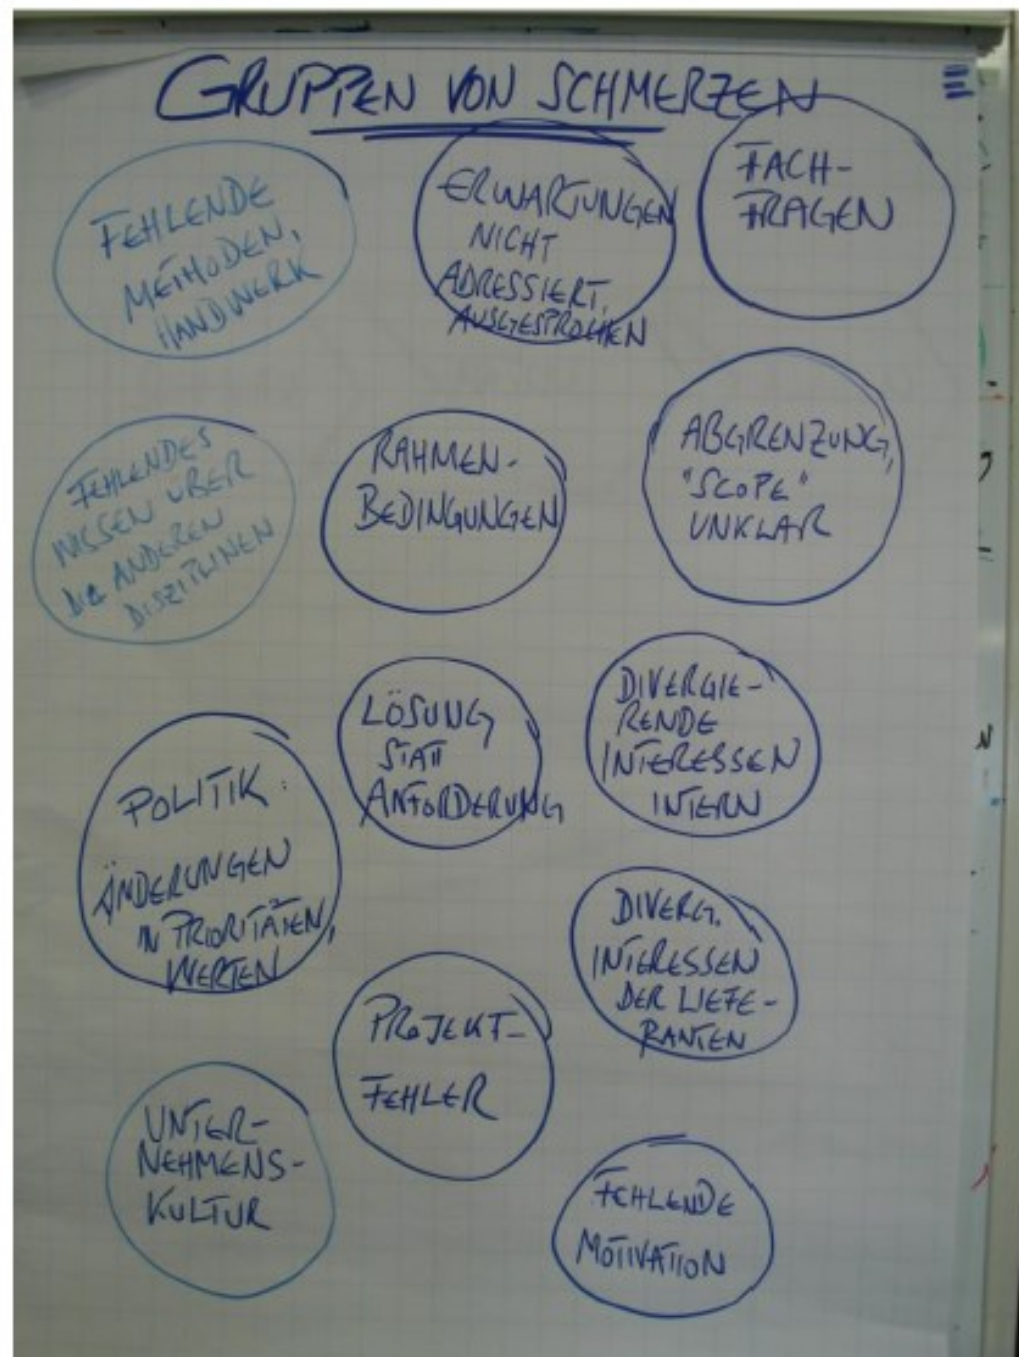 GRUPPEN VON SCHMERZEN
FEHLENDE
METHODEN,
HANDWERK
ERWARTUNGEN
NICHT
ADRESSIERT,
AUSGESPROCHEN
FACH-
FRAGEN
FEHLENDES
WISSEN ÜBER
DIE ANDEREN
DISZIPLINEN
RAHMEN-
BEDINGUNGEN
ABGRENZUNG,
"SCOPE"
UNKLAR
LÖSUNG
STATT
ANFORDERUNG
DIVERGIE-
RENDE
INTERESSEN
INTERN
POLITIK:
ÄNDERUNGEN
IN PRIORITÄTEN,
WERTEN
DIVERG.
INTERESSEN
DER LIEFE-
RANTEN
PROJEKT-
FEHLER
UNTER-
NEHMENS-
KULTUR
FEHLENDE
MOTIVATION